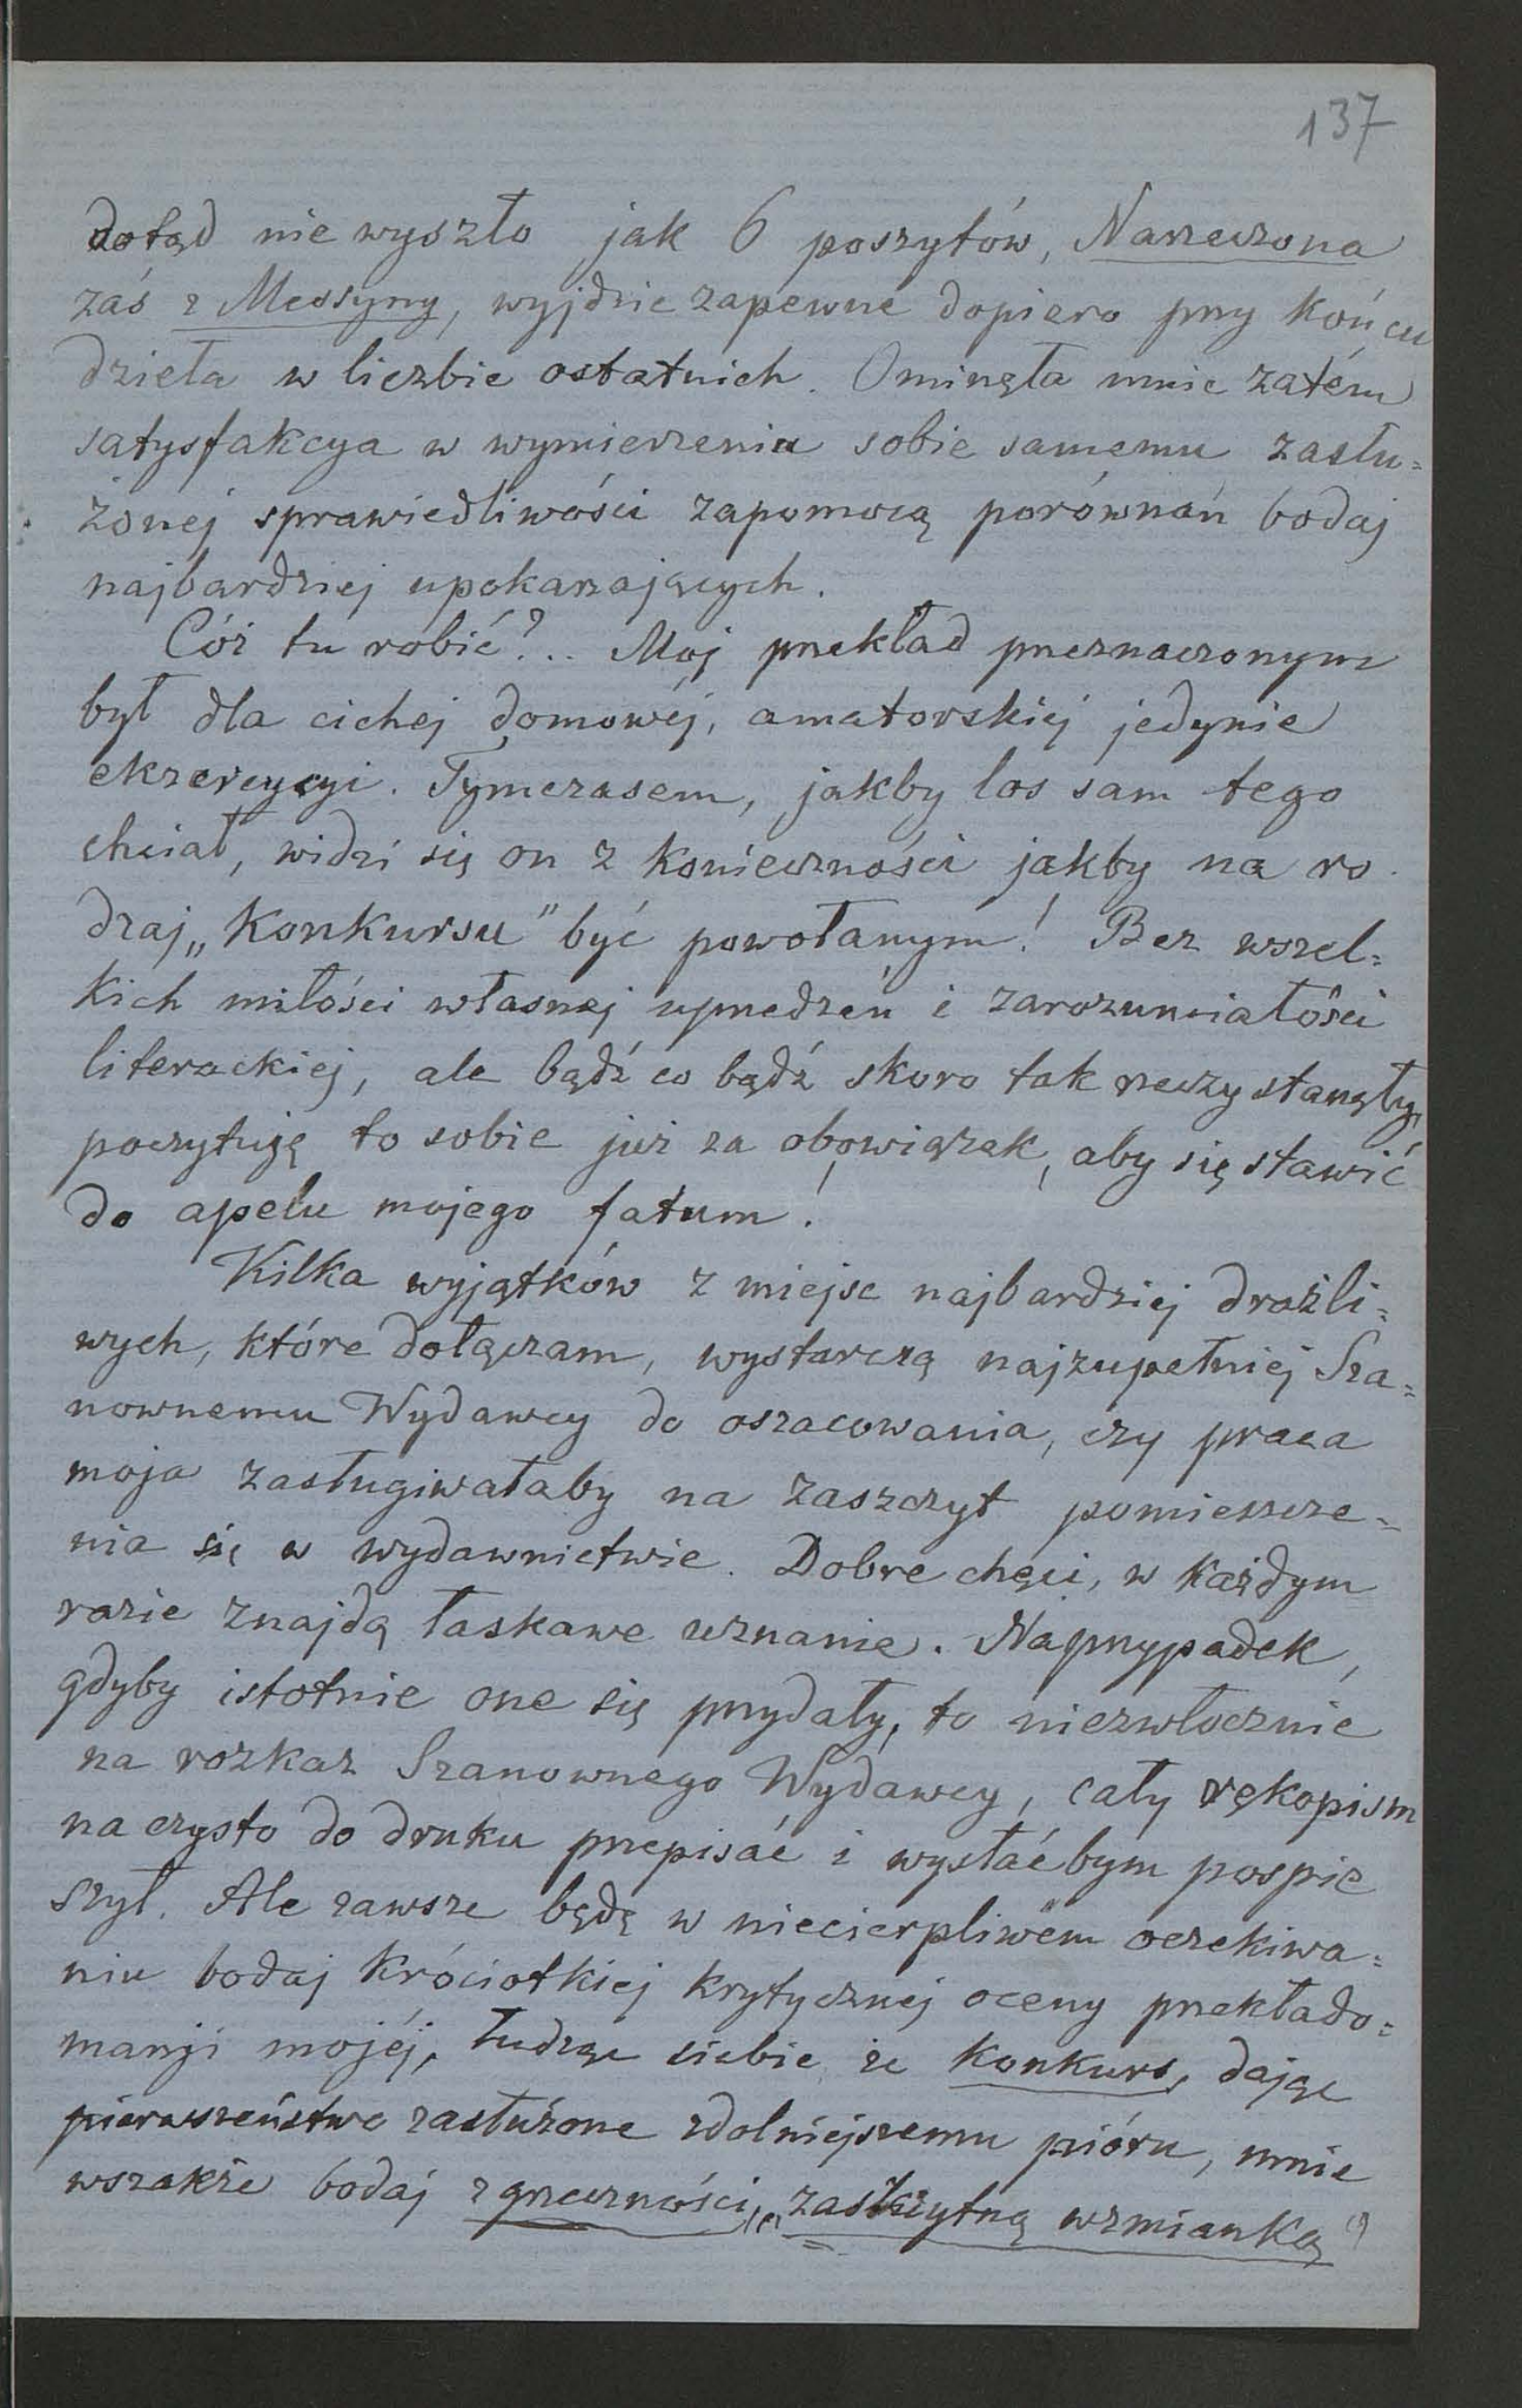 137
dotąd nie wyszło jak 6 poszytów, Narzeczona
zaś z Messyny, wyjdzie zapewne dopiero przy końcu
dzieła w liczbie ostatnich. Ominęła mnie zatém
satysfakcya w wymierzeniu sobie samemu zasłu=
żonej sprawiedliwości zapomocą porównań bodaj
najbardziej upokarzających.
Cóż tu robić?... Mój przekład przeznaczonym
był dla cichej domowéj, amatorskiej jedynie
ekzercycyi. Tymczasem, jakby los sam tego
chciał, widzi się on z konieczności jakby na ro
dzaj „Konkursu" być powołanym! Bez wszel=
kich miłości własnej uprzedzeń i zarozumiałości
literackiej, ale bądź co bądź skoro tak rzeczy stanęły,
poczytuję to sobie już za obowiązek, aby się stawić
do apelu mojego fatum!
Kilka wyjątków z miejsc najbardziej drażli=
wych, które dołączam, wystarczą najzupełniej Sza=
nownemu Wydawcy do oszacowania, czy praca
moja zasługiwałaby na zaszczyt pomieszcze=
nia się w wydawnictwie. Dobre chęci, w każdym
razie znajdą łaskawe uznanie. Naprzypadek,
gdyby istotnie one się przydały, to niezwłocznie
na rozkaz Szanownego Wydawcy, cały rękopism
na czysto do druku przepisać i wysłać bym pospie
szył. Ale zawsze będę w niecierpliwém oczekiwa=
niu bodaj króciotkiej krytycznéj oceny przekłado=
manji mojéj, łudząc siebie że Konkurs, dając
pierwszeństwo zasłużone zdolniejszemu pióru, mnie
wszakże bodaj z grzeczności, „zaszczytną wzmianką"